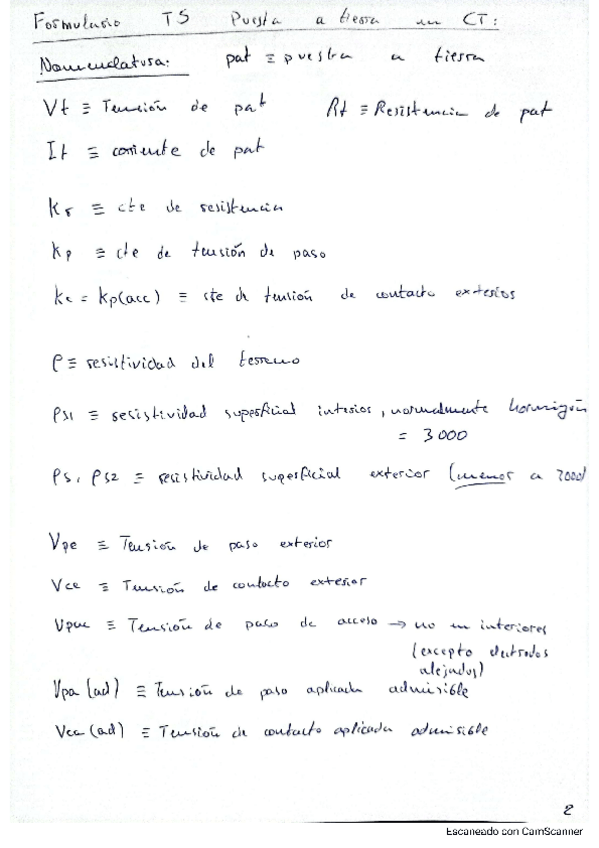 Formulario T5 Puesta a tierra en CT:
Nomenclatura: pat ≡ puestra a tierra
Vt ≡ Tensión de pat Rt ≡ Resistencia de pat
It ≡ corriente de pat
Kr ≡ cte de resistencia
Kp ≡ cte de tensión de paso
Kc = Kp(acc) ≡ cte de tensión de contacto exterior
ρ ≡ resistividad del terreno
ρs1 ≡ resistividad superficial interior, normalmente hormigón
= 3000
ρs, ρs2 ≡ resistividad superficial exterior (menor a 3000)
Vpe ≡ Tensión de paso exterior
Vce ≡ Tensión de contacto exterior
Vpac ≡ Tensión de paso de acceso → no en interiores
(excepto electrodos
alejados)
Vpa (ad) ≡ Tensión de paso aplicada admisible
Vca (ad) ≡ Tensión de contacto aplicada admisible
2
Escaneado con CamScanner